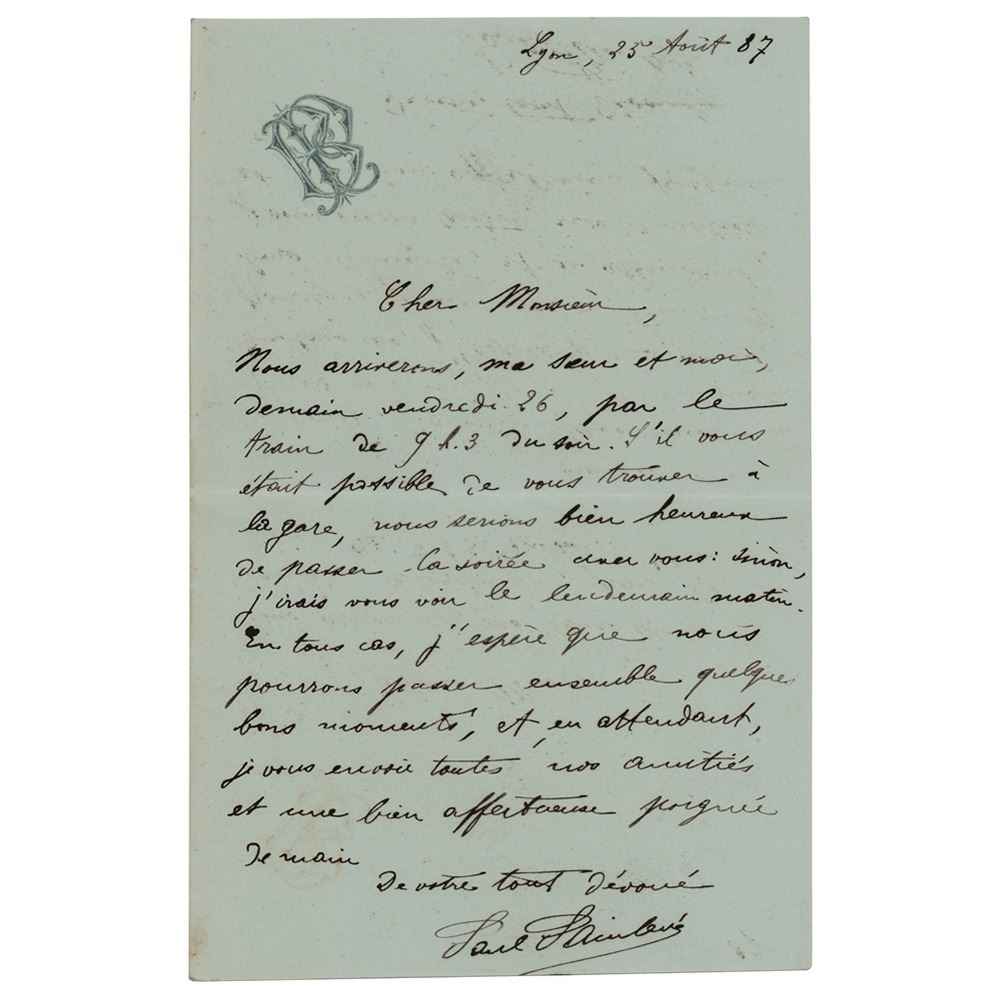 Lyon, 25 Août 87
Cher Monsieur,
Nous arriverons, ma sœur et moi,
demain vendredi 26, par le
train de 9 h. 3 du soir. S'il vous
était possible de vous trouver à
la gare, nous serions bien heureux
de passer la soirée avec vous: sinon,
j'irais vous voir le lendemain matin.
En tous cas, j'espère que nous
pourrons passer ensemble quelques
bons moments, et en attendant,
je vous envoie toutes nos amitiés
et une bien affectueuse poignée
de main
De votre tout dévoué
Paul Painlevé